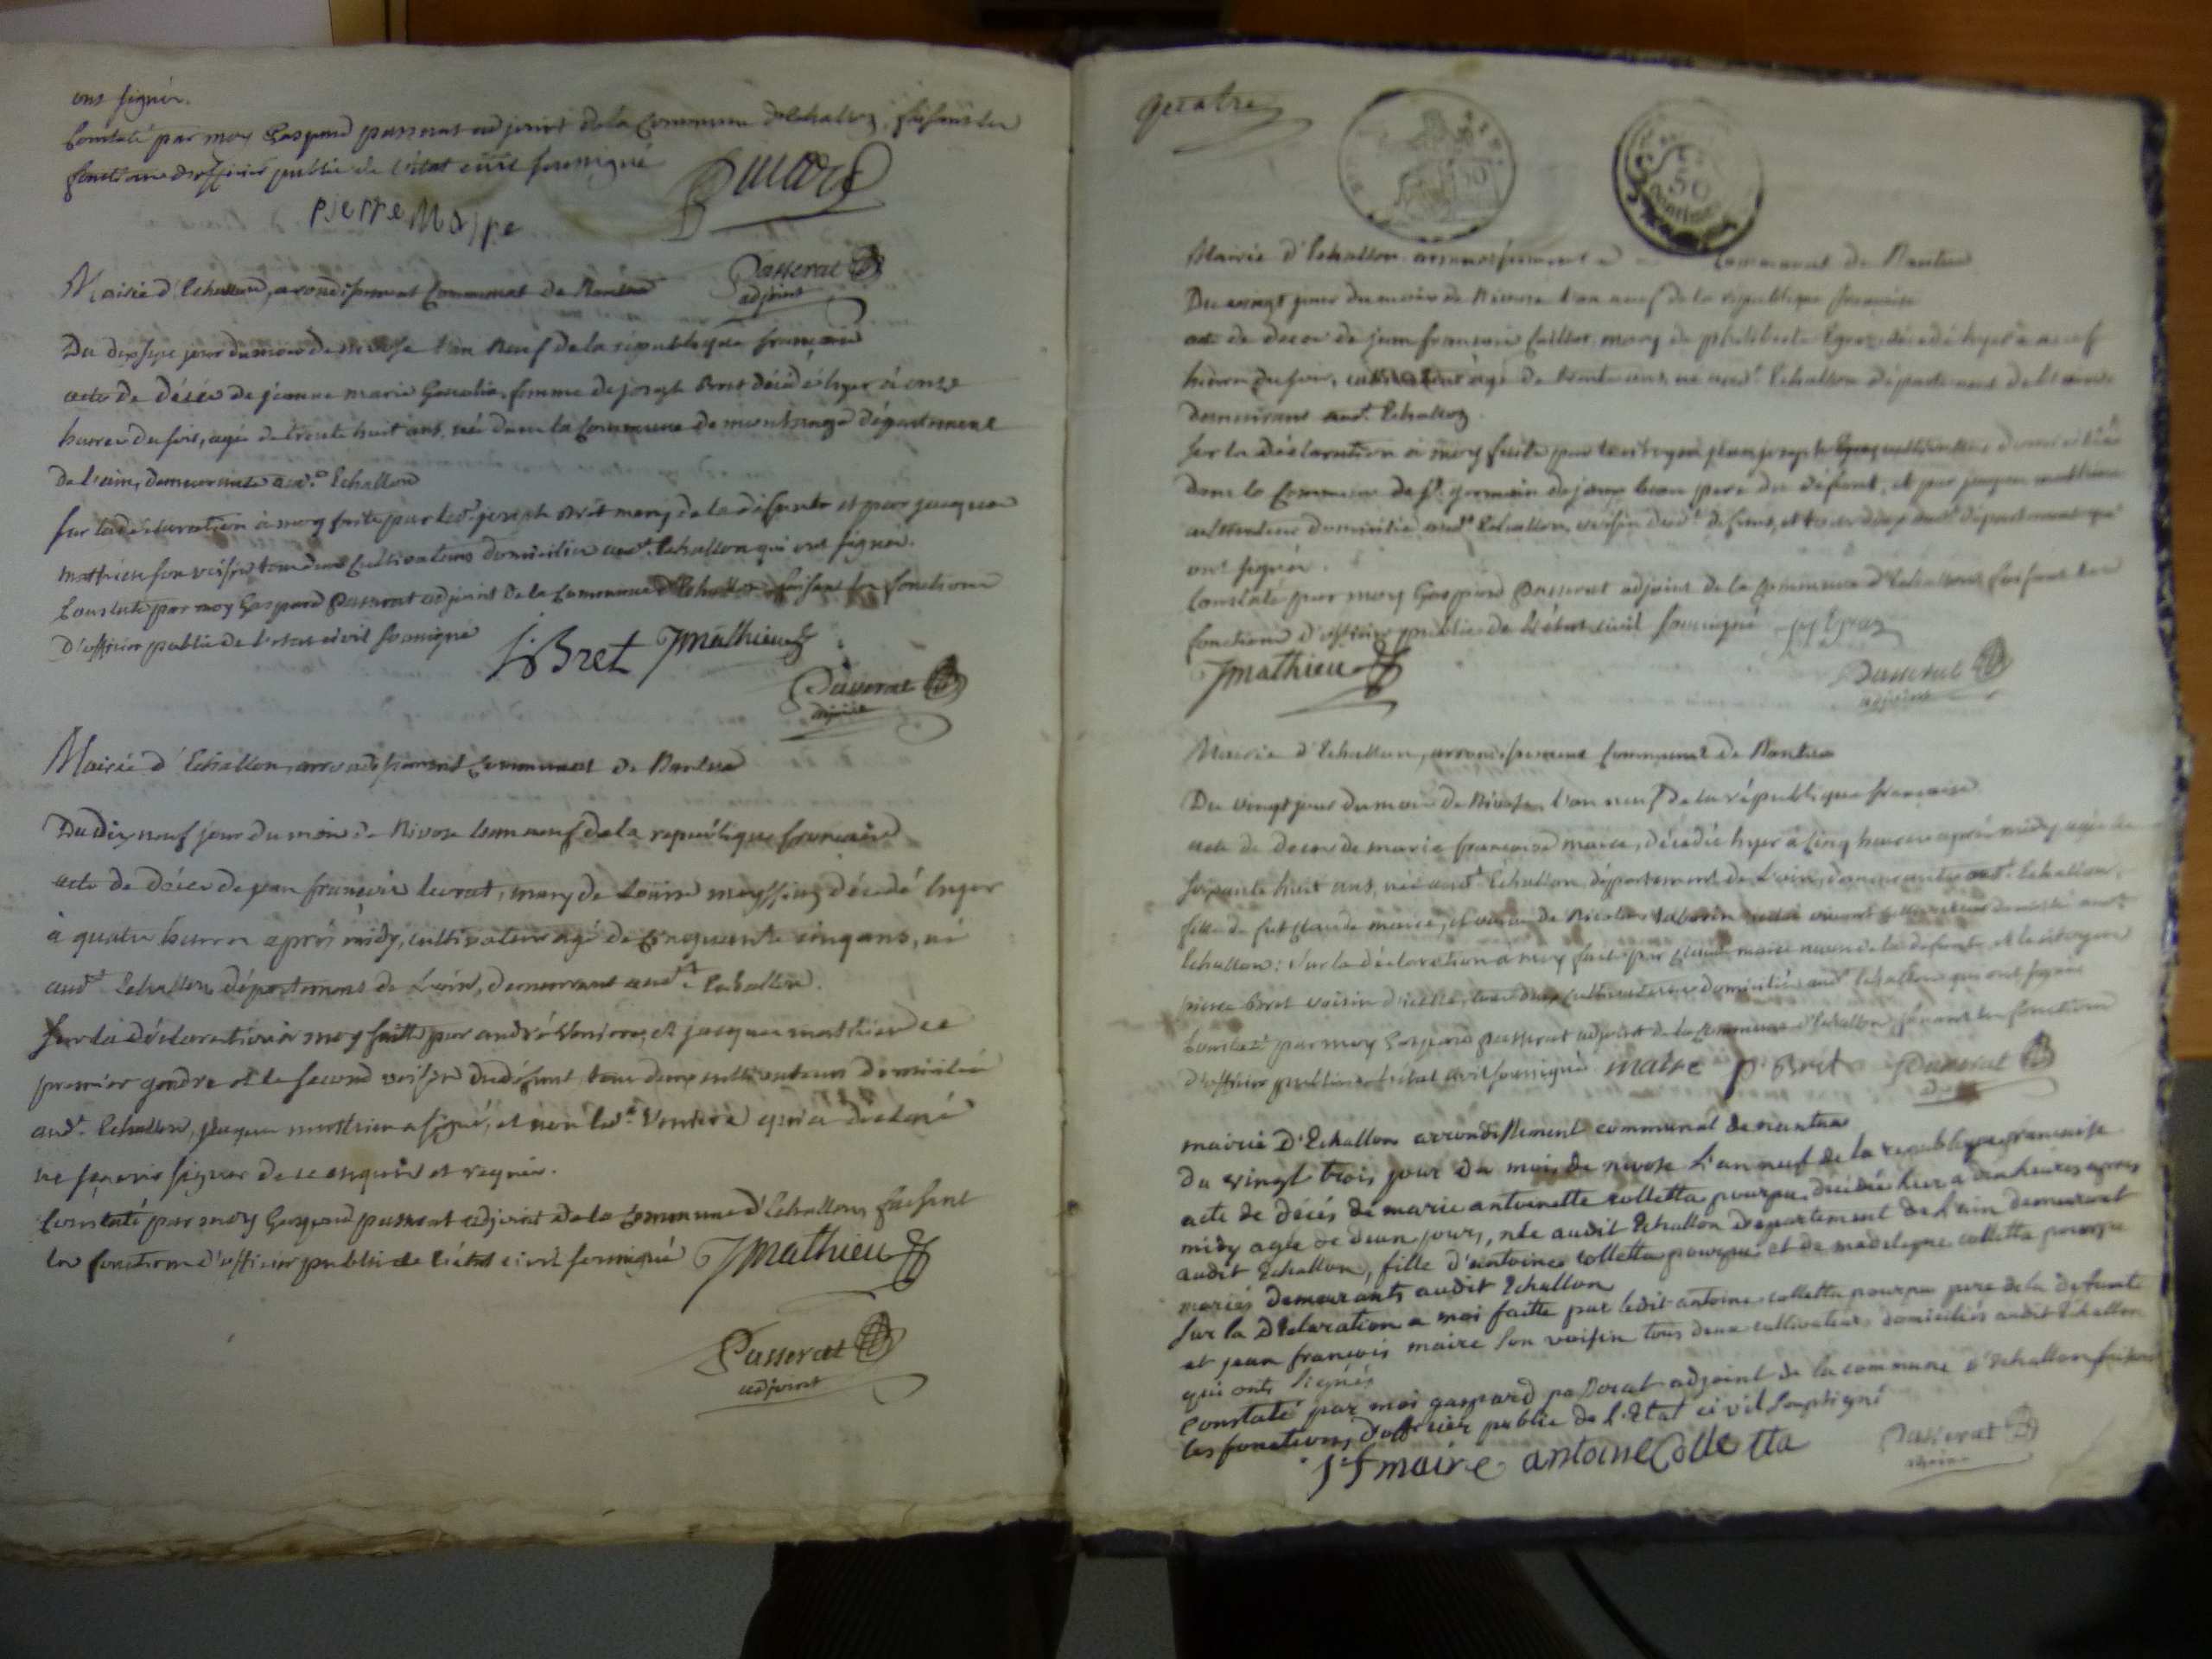 ont signér.
Constaté par moy Gaspard passerat adjoint de la Commune d'Echallon, faisant les
fonctions d'officier public de l'état civil soussigné
pierre Maire
Passerat
adjoint
Mairie d'Echallon, arondissement Communal de Nantua
Du dix sept jour du mois de nivose l'an neuf de la république française
acte de décés de jeanne marie femme de joseph Bret décédée hyer à onze
heures du soir, agée de trente huit ans, née dans la Commune de département
de l'ain, demeurante aud.t Echallon
sur la déclaration à moy faite par led.t joseph Bret mary de la défunte et par jacques
mathieu son voisin tous deux Cultivateurs domiciliés aud.t Echallon qui ont signér.
Constaté par moy Gaspard passerat adjoint de la Commune d'Echallon faisant les fonctions
D'officier public de l'état civil soussigné
J Bret J mathieu
Passerat
adjoint
Mairie d'Echallon, arrondissement Communal de Nantua
Du Dix neuf jour du mois de Nivose l'an neuf de la republique francaise
acte de décés de jean françois levrat, mary de Louise décédé hyer
à quatre heures après midy, cultivateur agé de Cinquante cinq ans, né
aud.t Echallon département de L'ain, demeurant aud.t Echallon.
Sur la déclaration à moy faitte par andré et jacques mathieu le
premier gendre et le second voisin du défunt, tous deux cultivateurs domiciliés
aud.t Echallon, jacques mathieu a signé, et non led.t qui a déclaré
ne sçavoir signer de ce enquis et requis.
Constaté par moy Gaspard passerat adjoint de la Commune d'Echallon, faisant
les fonctions d'officier public de l'état civil soussigné J mathieu
Passerat
adjoint
quatre
50
Mairie d'Echallon arrondissement Communal de Nantua
Du vingt jour du mois de Nivose l'an neuf de la république francaise
acte de deces de jean francois mary de philiberte décédé hyer à neuf
heures du soir, cultivateur agé de trente ans, né aud.t Echallon département de l'ain
demeurant aud.t Echallon.
sur la déclaration à moy faite par le citoyen jean joseph domicilié
dans la Commune de S.t germain de joux beau pere du défunt, et par jacques mathieu
cultivateur domicilié aud.t Echallon, voisin dud.t défunt, et tous deux dud.t département qui
ont signér.
Constaté par moy Gaspard Passerat adjoint de la Commune d'Echallon faisant les
fonctions d'officier public de l'état civil soussigné
J mathieu
Passerat
adjoint
Mairie d'Echallon, arrondissement Communal de Nantua
Du vingt jour du mois de Nivose, l'an neuf de la république francaise
acte de deces de marie francoise maire, décédée hyer à cinq heures après midy, agée de
soixante huit ans, née aud.t Echallon, département de L'ain, demeurante aud.t Echallon,
fille de fut Claude maire, et veuve de Nicolas vivant cultivateur domicilié aud.t
Echallon: Sur la déclaration a moy faite par Claude maire neveu de la defunte et le citoyen
pierre Bret voisin d'icelle, tous deux Cultivateurs domiciliés aud.t Echallon qui ont signér
Constaté par moy Gaspard passerat adjoint de la Commune d'Echallon faisant les fonctions
d'officier public de l'état civil soussigné maire p. Bret Passerat
mairie D'Echallon arrondissement communal de nantua
du vingt trois jour du mois de nivose L'an neuf de la republique francaise
acte de décés de marie antoinette colletta pourpu, décédée hier a heures apres
midy agée de deux jours, née audit Echallon Departement de L'ain demeurant
audit Echallon, fille d'antoine colletta pourpu et de madelegne colletta pourpu
mariés demeurants audit Echallon
Sur la Declaration a moi faitte par ledit antoine colletta pourpu pere de la defunte
et jean francois maire Son voisin tous deux cultivateurs domiciliés audit Echallon
qui onts signés
Constaté par moi gaspard passerat adjoint de la commune d'Echallon faisant
les fonctions d'officier public de l'Etat civil Soussigné
jf maire antoine Colletta
Passerat